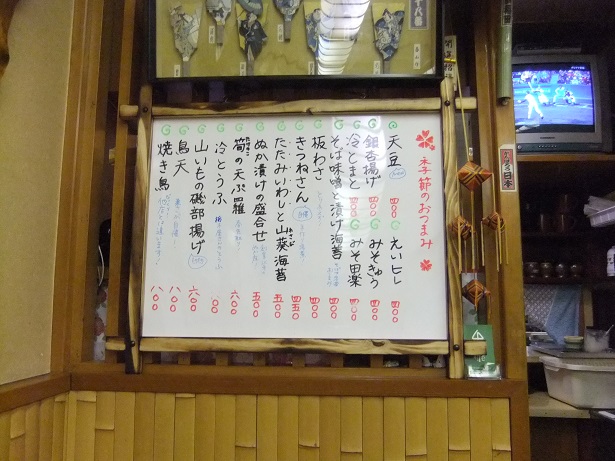 季節のおつまみ
天豆 四〇〇
えいヒレ 四〇〇
銀杏揚げ 四〇〇
みそきゅう 四〇〇
冷とまと 四〇〇
みそ田楽 四〇〇
そば味噌と漬け海苔 四〇〇
板わさ 四〇〇
きつねさん 四五〇
たたみいわしと山葵海苔 五〇〇
ぬか漬けの盛合せ 五〇〇
筍の天ぷ羅 六〇〇
冷とうふ
山いもの磯部揚げ 六〇〇
鳥天 八〇〇
焼き鳥 八〇〇
日本